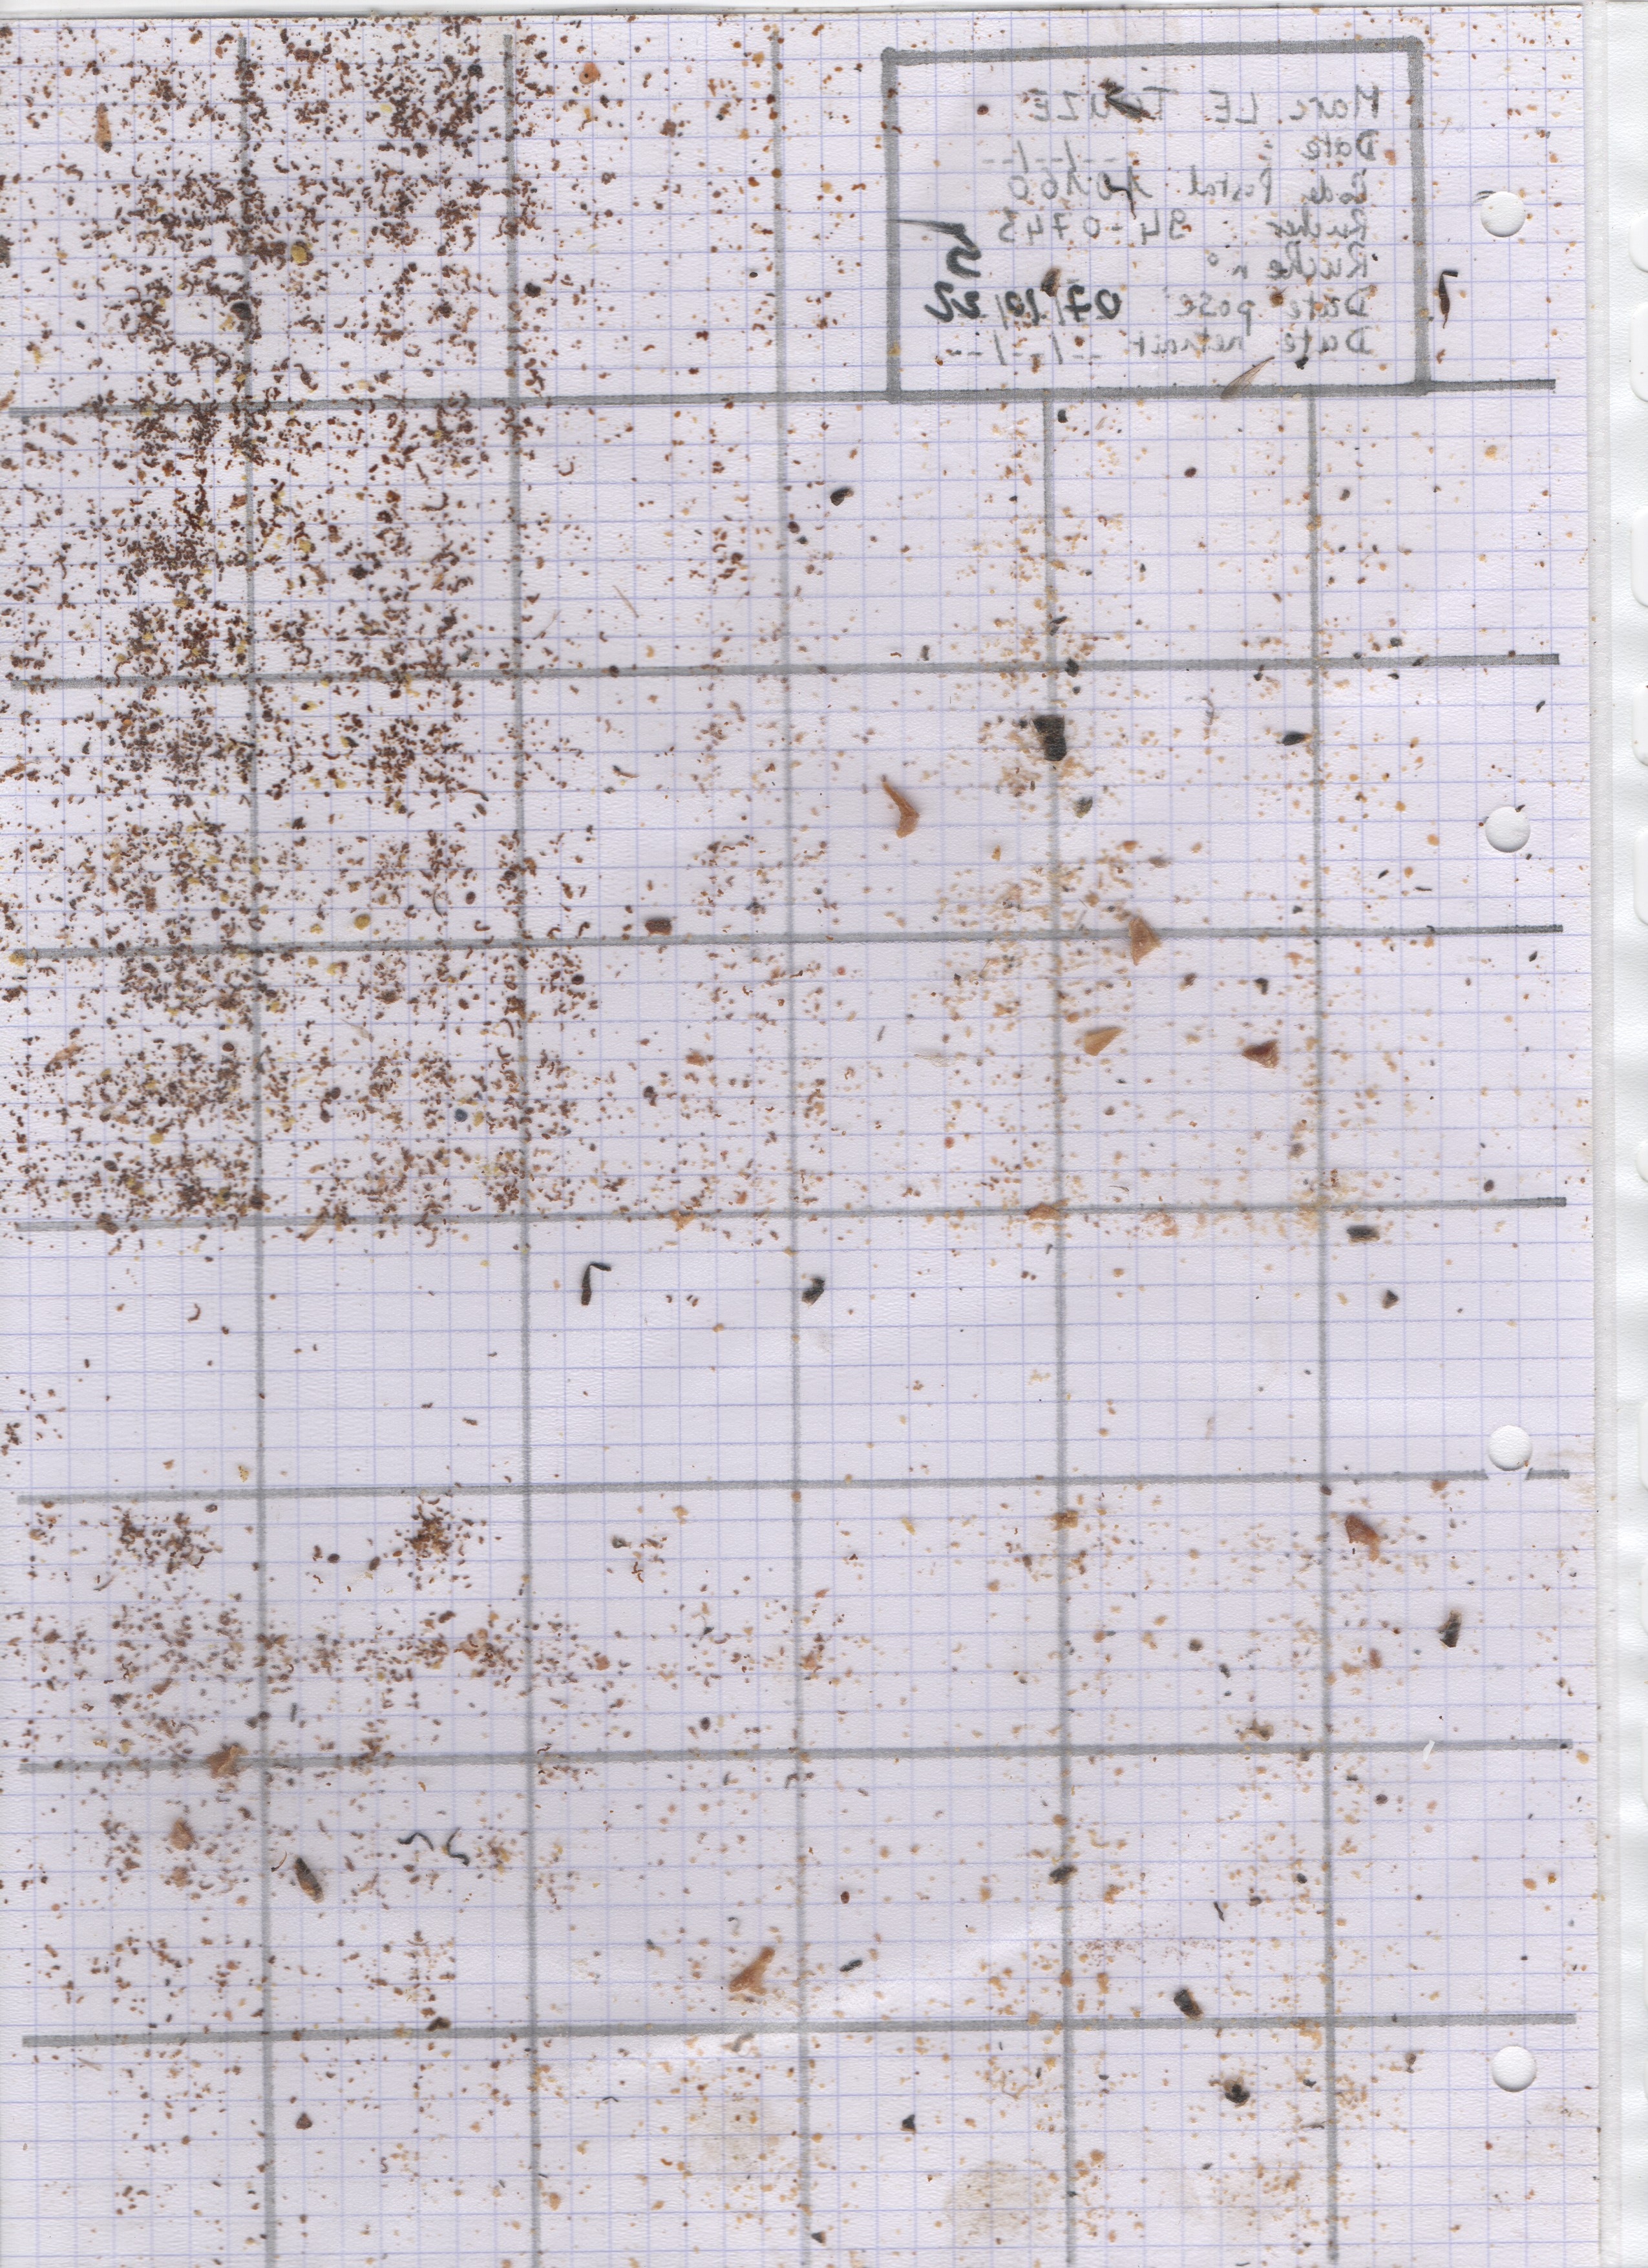 Marc LE TOUZE
Date : --/--/--
Code Postal 10160
Rucher : 94-0745
Ruche n° 5
Date pose 07/10/22
Date retrait --/--/--